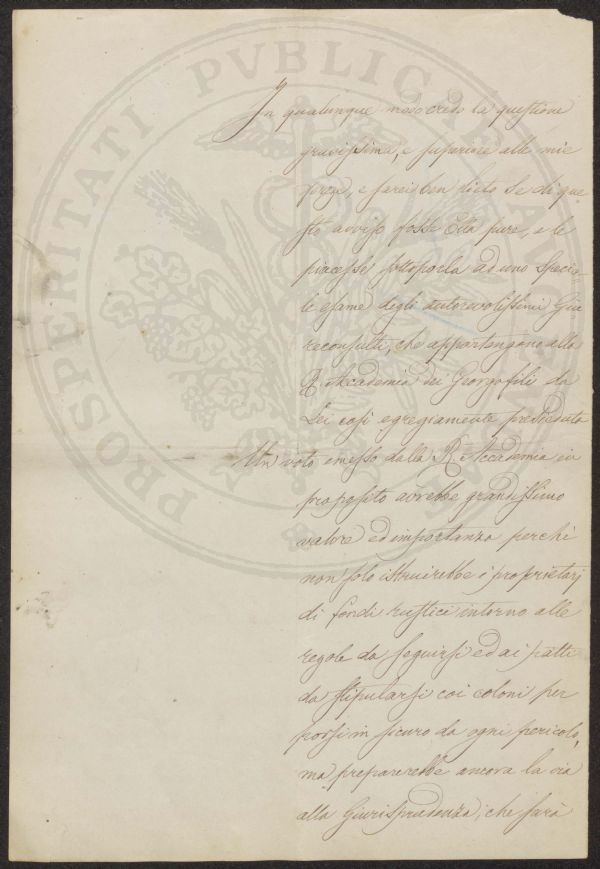 PROSPERITATI PVBLICAE AVGENDAE
In qualunque modo credo la questione
gravissima, e superiore alle mie
forze, e sarei ben lieto se di que
sto avviso fosse Ella pure, e le
piacesse sottoporla ad uno specia
le esame degli autorevolissimi Giu
reconsulti, che appartengono alla
R. Accademia dei Georgofili da
Lei così egregiamente presieduta
Un voto emesso dalla R. Accademia in
proposito avrebbe grandissimo
valore ed importanza perchè
non solo istruirebbe i proprietarj
di fondi rustici intorno alle
regole da seguirsi ed ai patti
da stipularsi coi coloni per
porsi in sicuro da ogni pericolo,
ma preparerebbe ancora la via
alla Giurisprudenza, che sarà